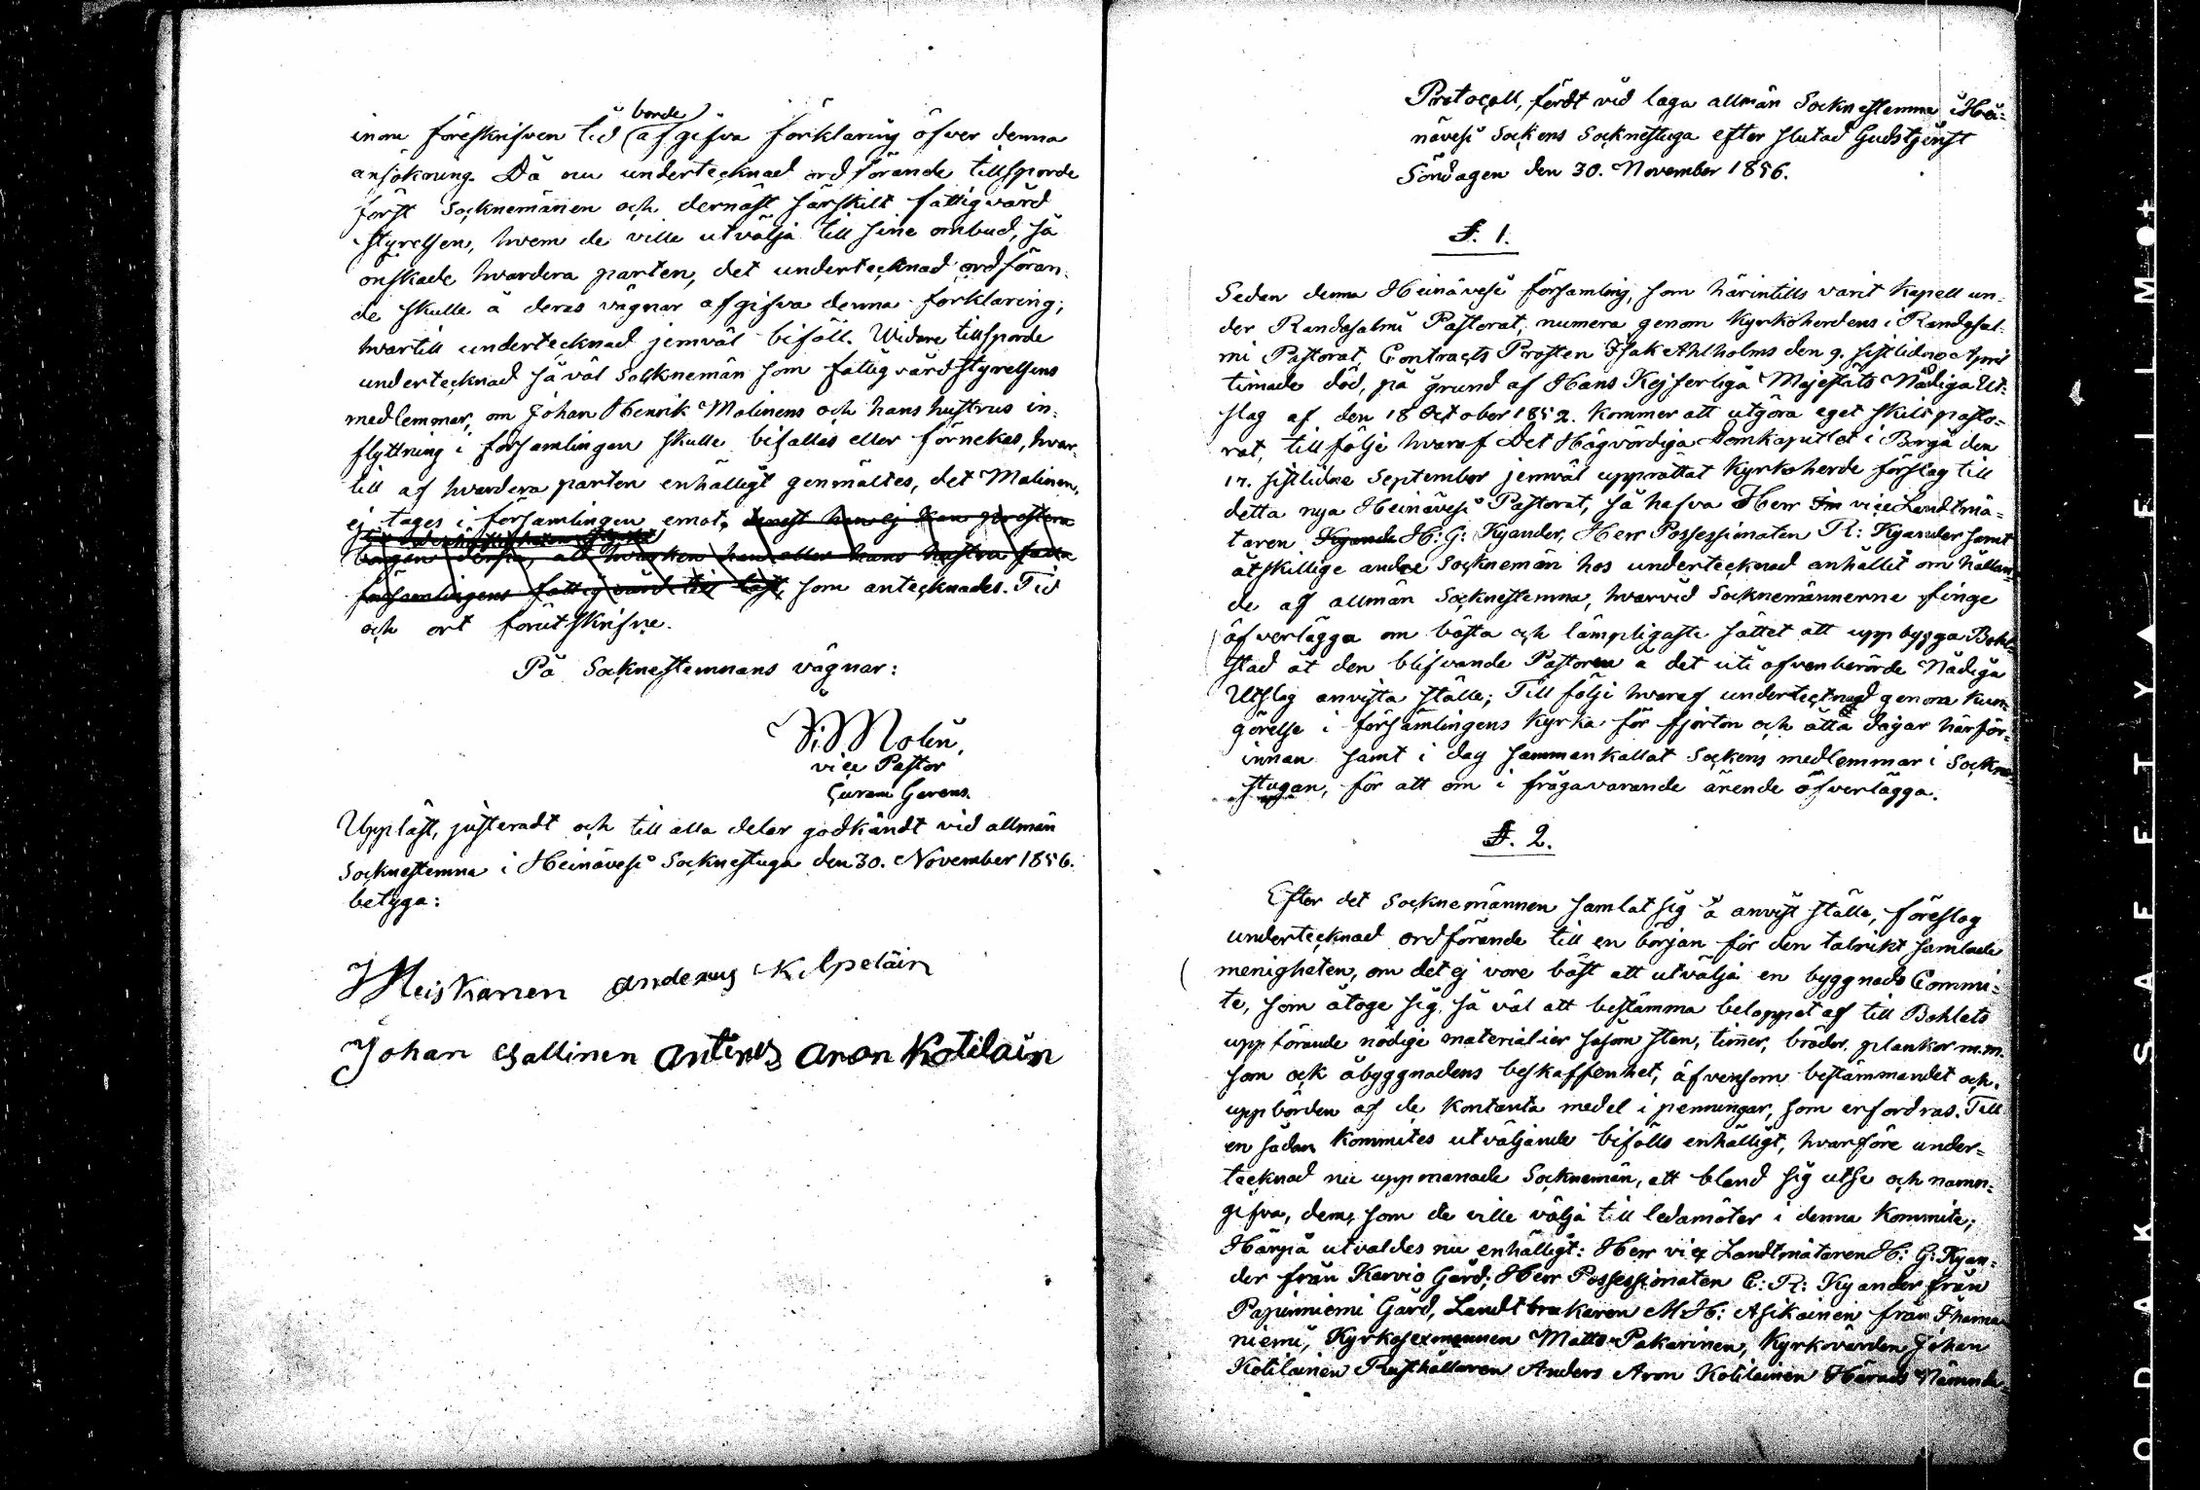 borde
inom föreskrifven tid afgifva förklaring öfver denna
ansökning. Då nu undertecknad ordförande tillsporde
först Socknemännen och dernäst särskilt fattigvård
styrelsen, hvem de ville utvälja till sine ombud, så
önskade hvardera parten, det undertecknad ordföran-
de skulle å deras vägnar afgifva denna förklaring;
hvartill undertecknad jemväl biföll. Widare tillsporde
undertecknad så väl Socknemän som fattigvårdstyrelsens
medlemmar, om Johan Henrik Malinens och hans hustrus in-
flyttning i församlingen skulle bifallas eller förnekas, hvar-
till af hvardera parten enhälligt genmältes, det Malinen,
ej tages i församlingen emot, derest han ej kan prestera
borgen derför, att hvarken han eller hans hustru falla
församlingens fattigvård till last, som antecknades. Tid
och ort förutskrifne.
På Socknestemmans vägnar:
Molin,
vice Pastor
Curam Gerens.
Uppläst, justeradt och till alla delar godkändt vid allmän
Socknestemma i Heinävesi Socknestuga den 30. November 1856.
betyga:
Heiskanen Anderus Kilpeläin
Johan Sallinen Anterus Aron Kotilain
Protocoll, fördt vid laga allmän Socknestemma i Hei-
nävesi Sockens Socknestuga efter slutad Gudstjenst
Söndagen den 30. November 1856.
§. 1.
Sedan denna Heinävesi församling, som härintills varit Kapell un-
der Randasalmi Pastorat, numera genom Kyrkoherdens i Randasal-
mi Pastorat, Contracts Prosten Isak Ahlholms den 9. sistlidne April
timade död, på grund af Hans Kejserliga Majestäts Nådiga Ut-
slag af den 18 October 1852. kommer att utgöra eget skilt pasto-
rat, till följe hvaraf Det Högvördiga Domkapitlet i Borgå den
17. sistlidne September jemväl upprättat Kyrkoherde förslag till
detta nya Heinävesi Pastorat, så hafva Herr vice Landtmä-
taren Kyande H: G: Kyander, Herr Possessionaten R: Kyander samt
åtskillige andre Socknemän hos undertecknad anhållit om hållan-
de af allmän Socknestemma, hvarvid Socknemännerne finge
öfverlägga om bästa och lämpligaste sättet att uppbygga Bohl-
stad åt den blifvande Pastorn å det uti ofvanberörde Nådiga
Utslag anvista ställe; Till följe hvaraf undertecknad genom kun-
görelse i församlingens Kyrka för fjorton och åtta dagar härför-
innan samt i dag sammankallat Sockens medlemmar i Sockne-
stugan, för att om i frågavarande ärende öfverlägga.
§. 2.
Efter det Socknemännen samlat sig å anvist ställe, föreslog
undertecknad ordförande till en början för den talrikt samlade
menigheten, om det ej vore bäst att utvälja en byggnads Commi-
te, som åtoge sig så väl att bestämma beloppet af till Bohlets
uppförande nödige materialier såsom sten, timer, bräder, plankor m.m.
som ock åbyggnadens beskaffenhet, äfvensom bestämmandet och
uppbörden af de kontanta medel i penningar, som erfordras. Till
en sådan Kommites utväljande bifölls enhälligt, hvarföre under-
tecknad nu uppmanade Socknemän, att bland sig utse och namn-
gifva, dem, som de ville välja till ledamöter i denna Kommite;
Härpå utvaldes nu enhälligt: Herr vice Landtmätaren H: G: Kyan-
der från Karvio Gård; Herr Possessionaten C: R: Kyander från
Papinniemi Gård, Landtbrukaren M H: Asikainen från Ihama-
niemi, Kyrkosexmannen Matts Pakarinen, Kyrkovärden Johan
Kotilainen Rusthållaren Anders Aron Kotilainen Härads Nämnde-
ODAK · SAFETY ▲ FILM